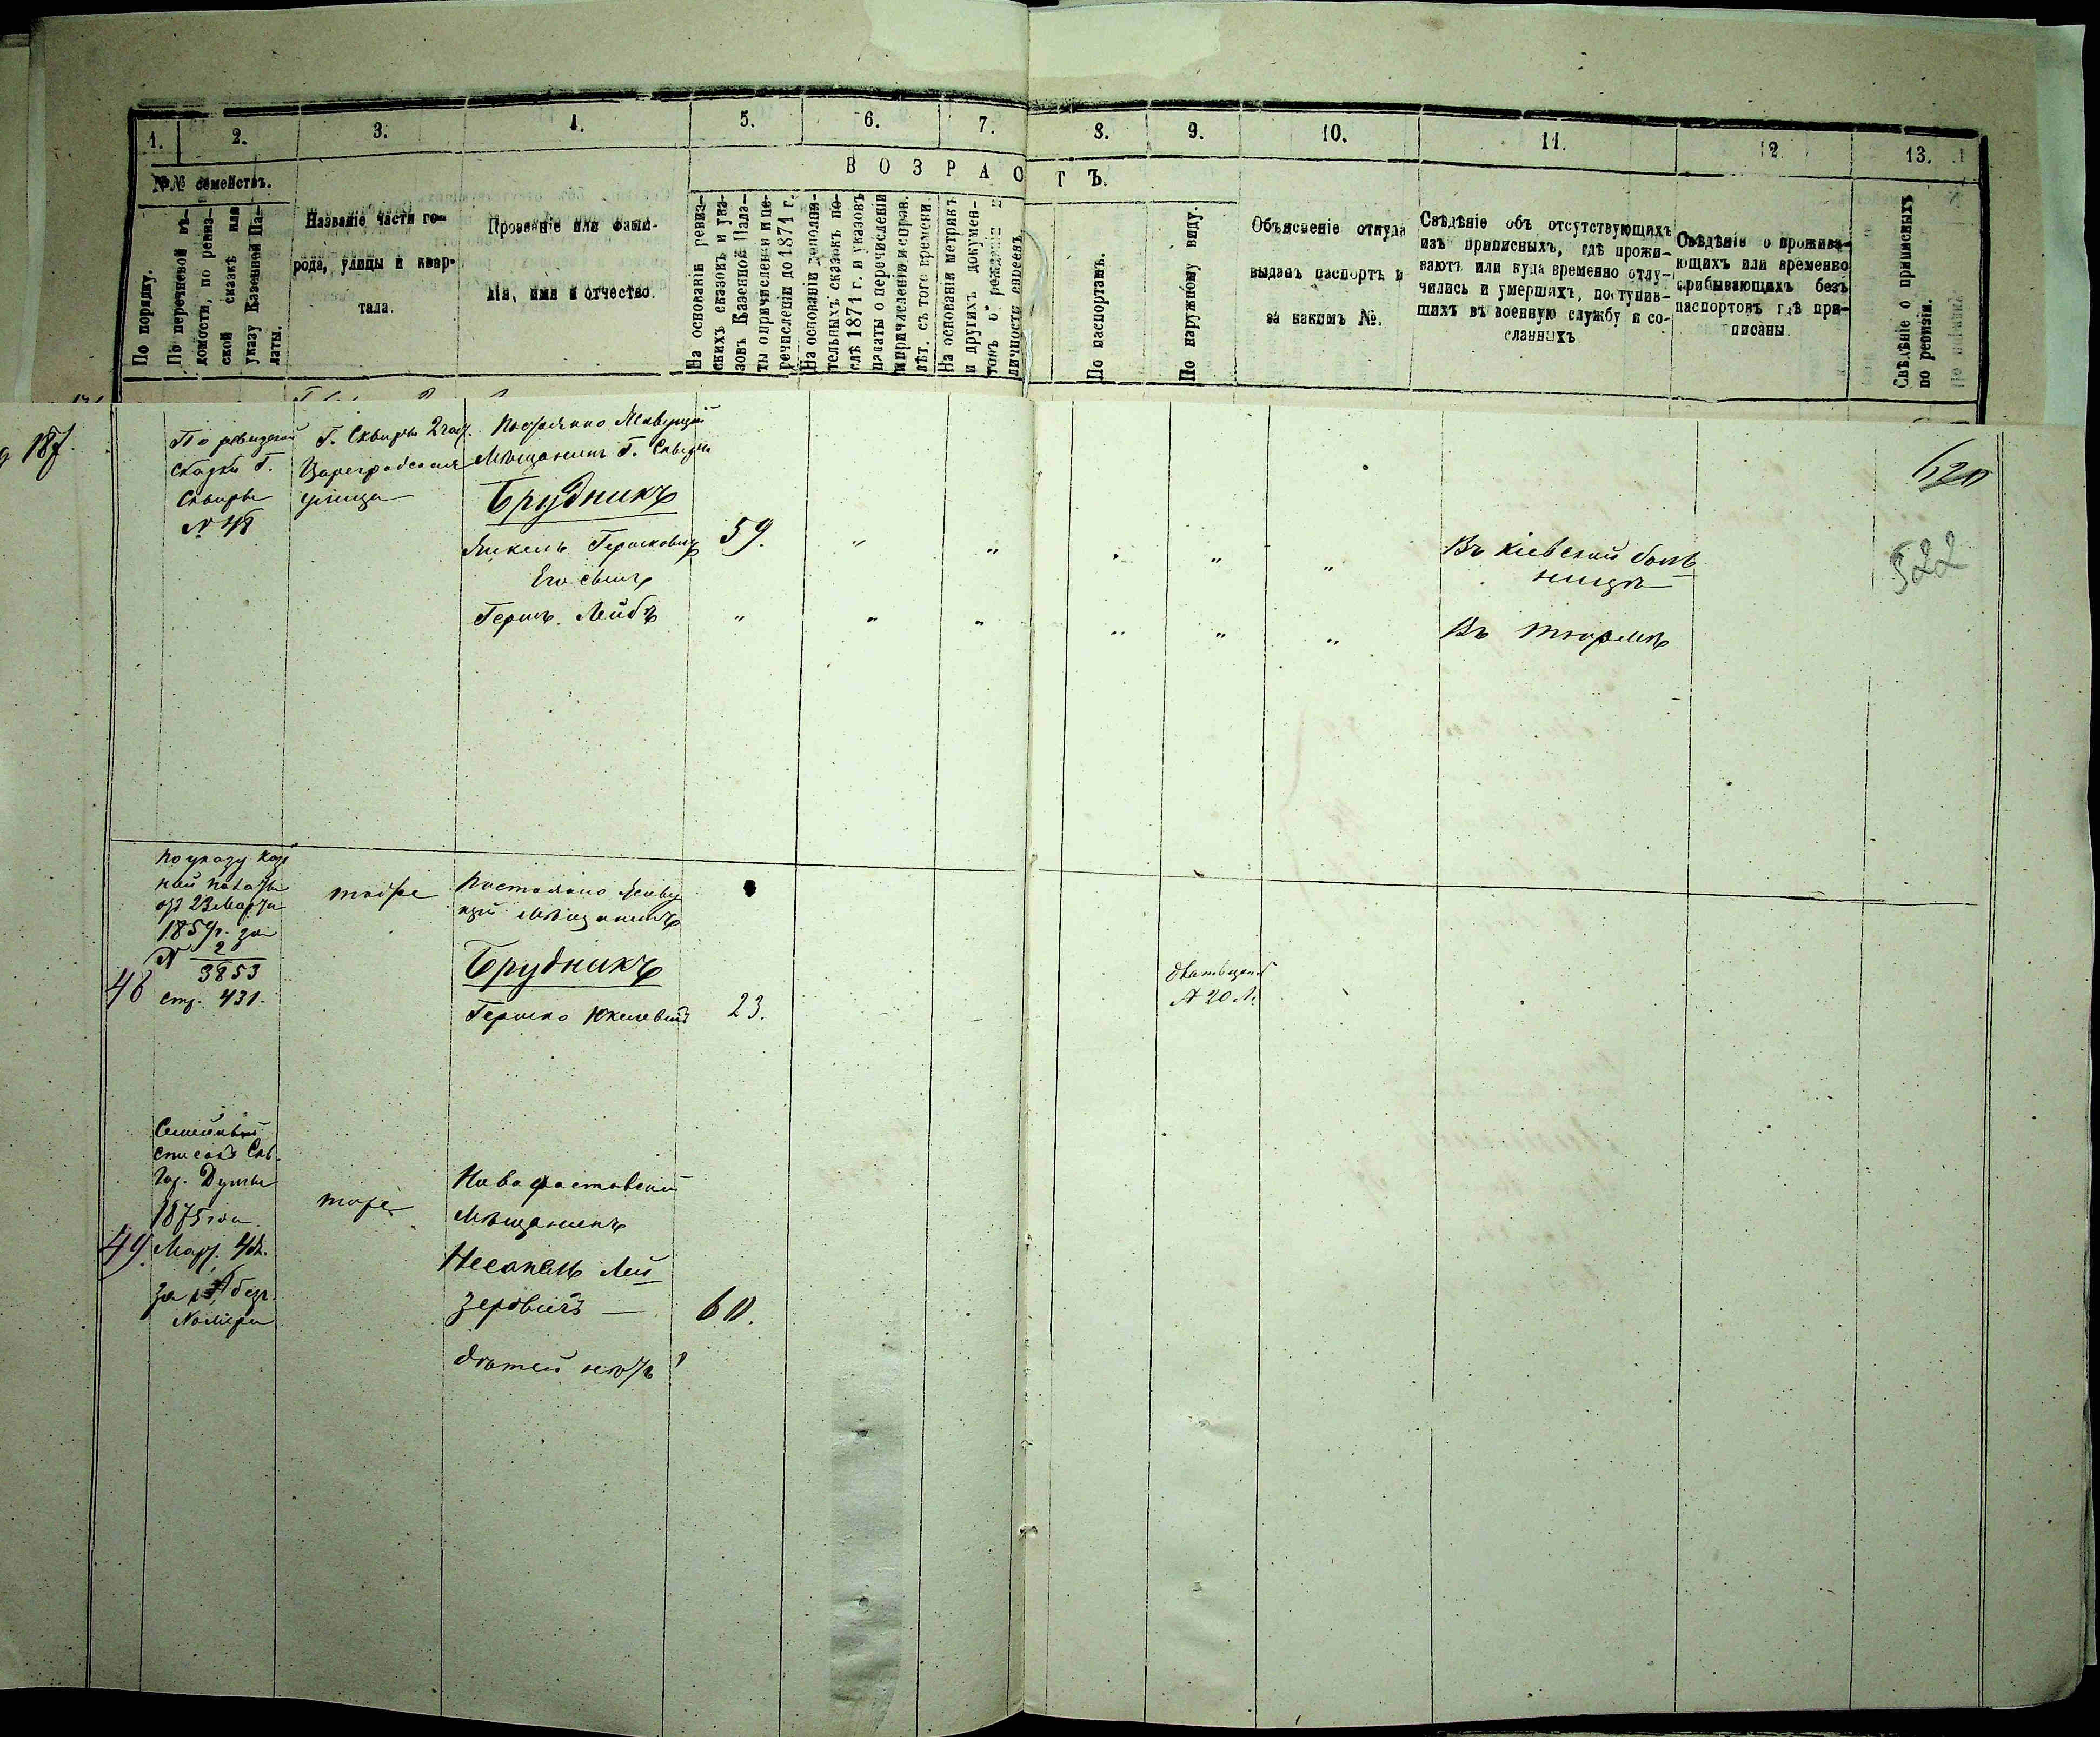 1. 2. 3. 4. 5. 6. 7. 8. 9. 10. 11. 12 13.
№№ семействъ.
ВОЗРАСТЪ.
По порядку.
По перечневой вѣ-
домости, по ревиз-
ской сказкѣ или
указу Казенной Па-
латы.
Названіе части го-
рода, улицы и квар-
тала.
Прозваніе или фами-
лія, имя и отчество.
На основаніи ревиз-
скихъ сказокъ и ука-
зовъ Казенной Пала-
ты о причисленіи и пе-
речисленіи до 1871 г.
На основаніи дополни-
тельныхъ сказокъ по-
слѣ 1871 г. и указовъ
палаты о перечисленіи
и причисленіи и справ.
лѣт. съ того времени.
На основаніи метрикъ
и другихъ докумен-
товъ о рожденіи и
личности евреевъ
По паспортамъ.
По наружному виду.
Объясненіе откуда
выданъ паспортъ и
за какимъ №.
Свѣдѣніе объ отсутствующихъ
изъ приписныхъ, гдѣ прожи-
ваютъ или куда временно отлу-
чились и умершихъ, поступив-
шихъ въ военную службу и со-
сланныхъ
Свѣдѣніе о прожива-
ющихъ или временно
прибывающихъ безъ
паспортовъ гдѣ при-
писаны.
Свѣдѣніе о приписныхъ
по ревизіи.
187.
По ревизской
сказки Г.
Сквиры
№ 48
Г. Сквиры 2 част.
Цареградская
улица
Постоянно Живущій
Мѣщанинъ Г. Сквиры
Брудникъ
Янкель Гершковичъ 59. " " " " " Въ Кіевской боль
ницѣ
Его сынъ
Гершъ Лейбъ " " " " " " Въ тюрмѣ
520
522
По указу Казе
ной палаты
отъ 23 Марта
1859 г. за
№ 2
3853
стр. 431.
48
тойже
Постояно Живу
щій Мѣщанинъ
Брудникъ
Гершко Юкелевичъ 23.
20 Л.
49.
Семейный
списокъ Скв.
Гор. Думы
1875 года
Март. 4 дн.
за безъ
Номера
тоже
Новофастовскій
Мѣщанинъ
Лей
зеровичъ — 60.
дѣтей нѣтъ